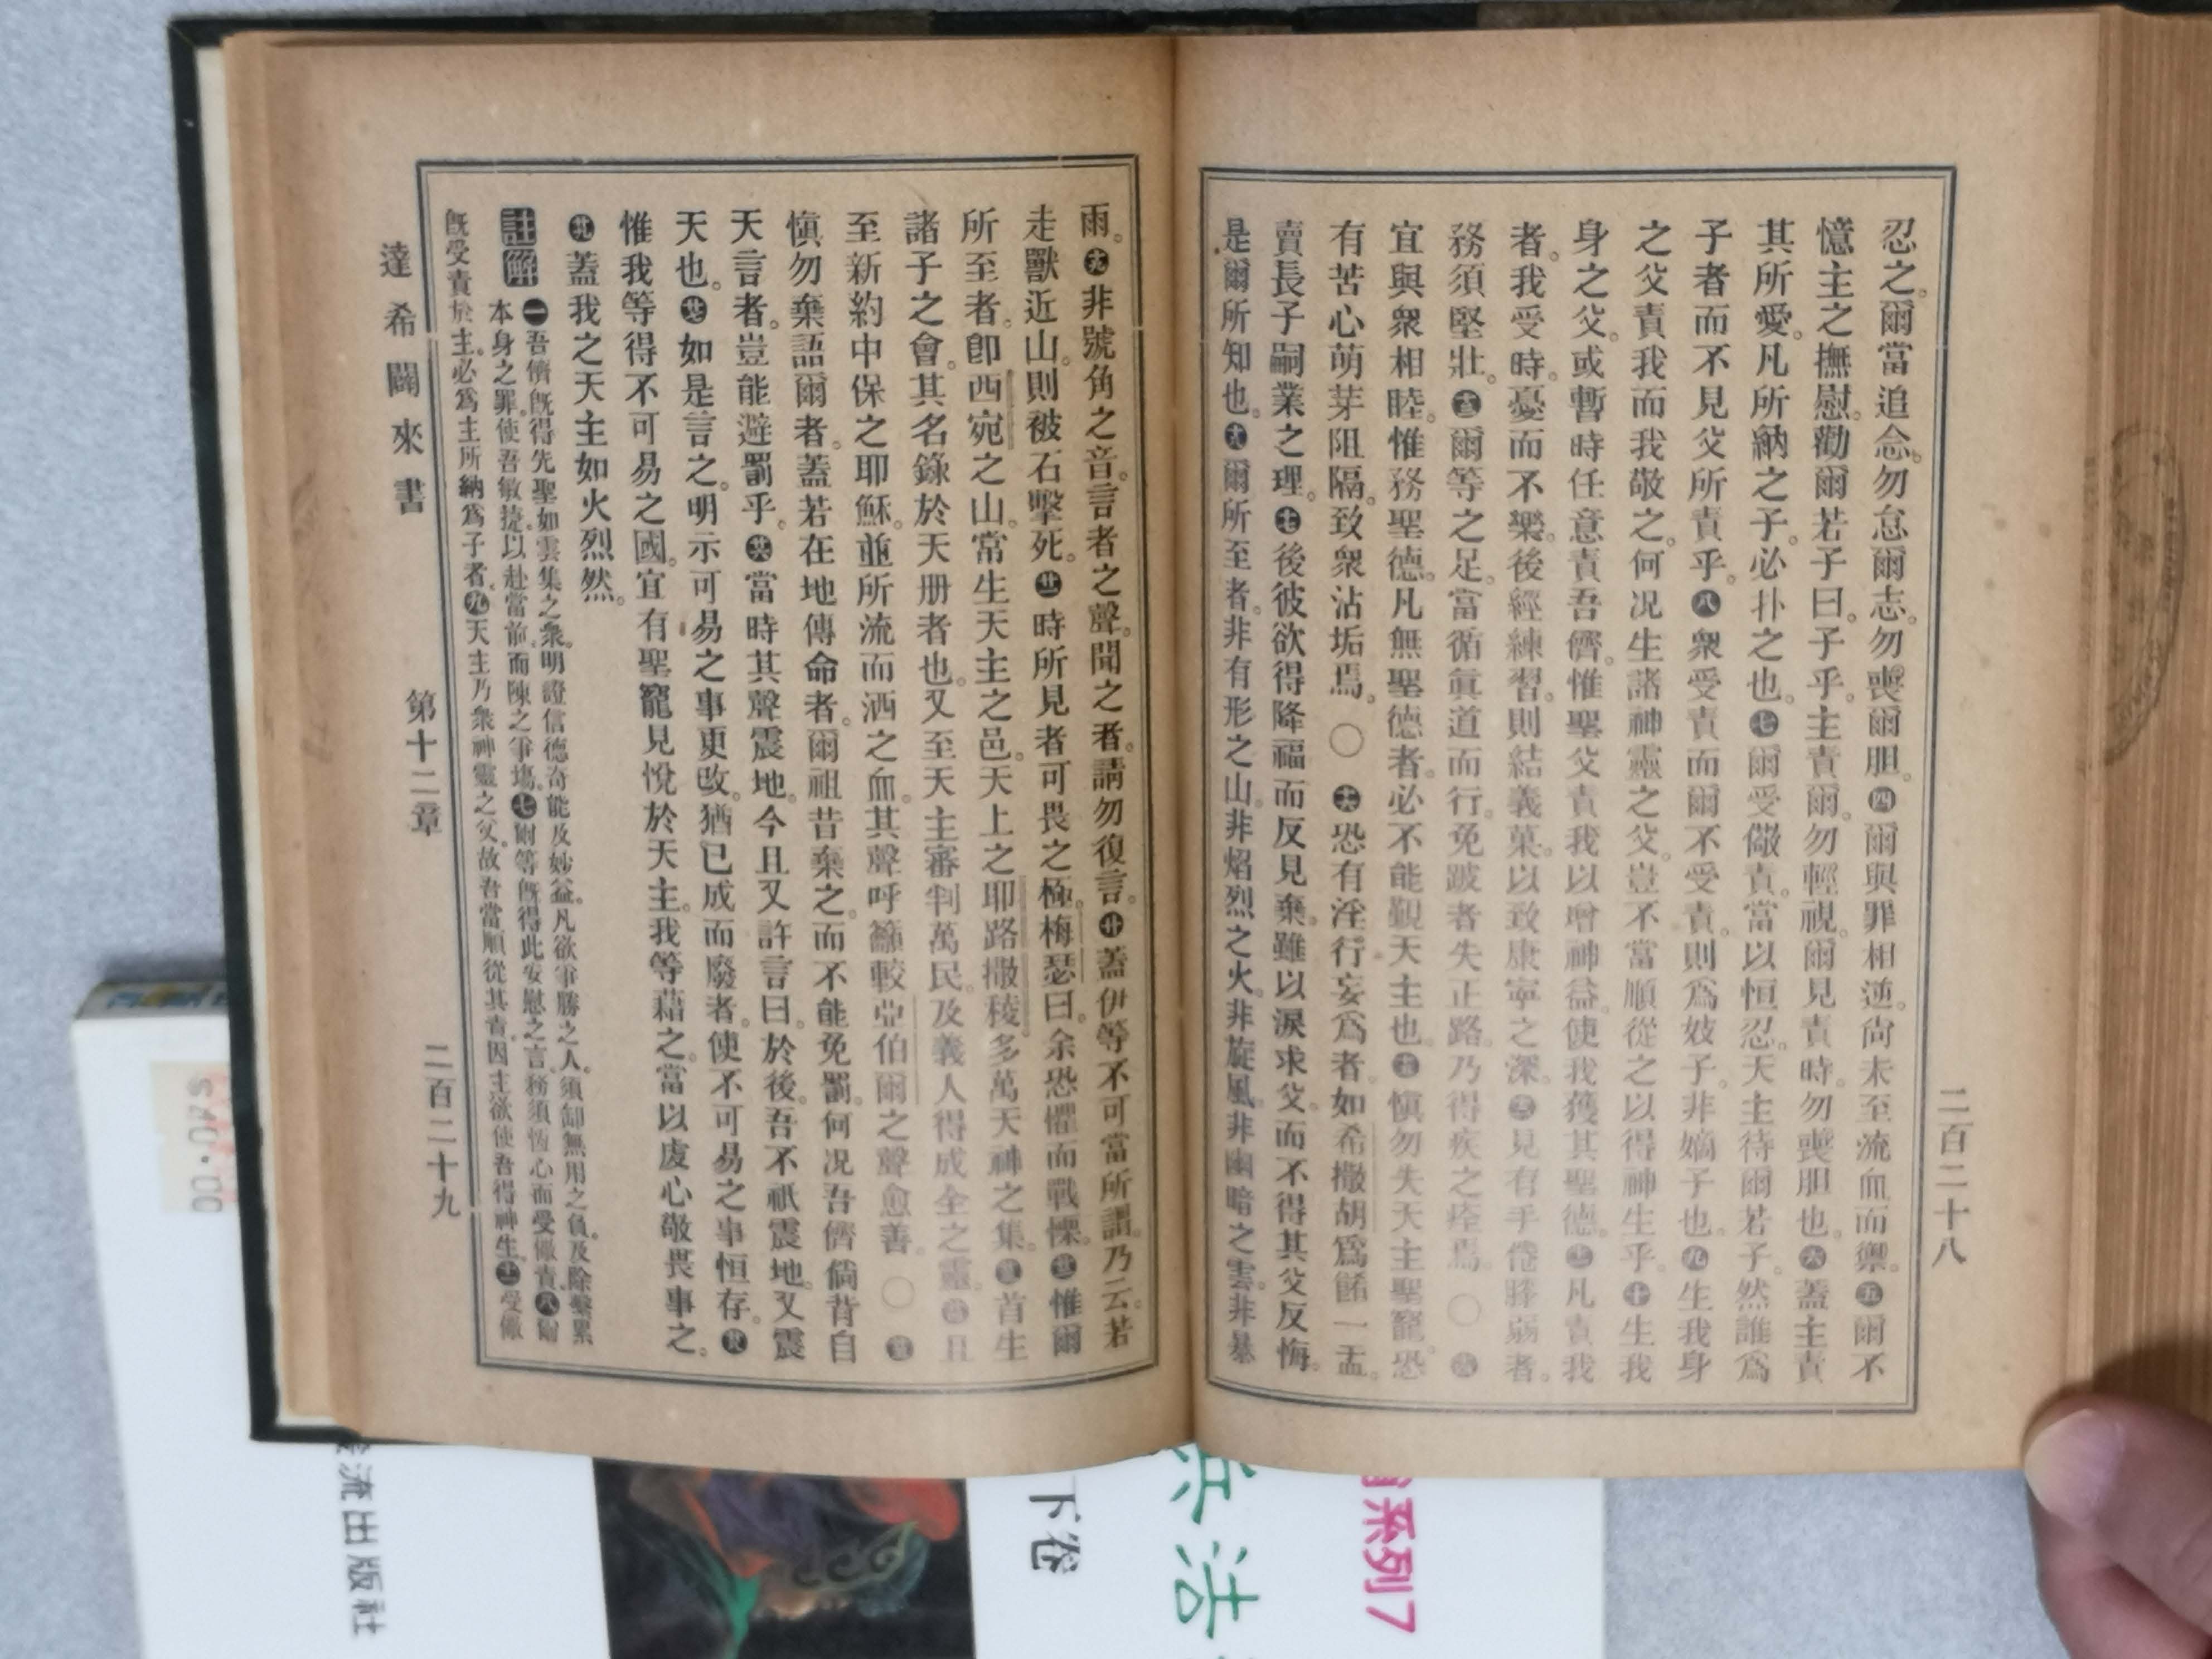 忍之。爾當追念。勿怠爾志。勿喪爾胆。四爾與罪相逆。尙未至流血而禦。五爾不
憶主之撫慰。勸爾若子曰。子乎。主責爾。勿輕視。爾見責時。勿喪胆也。六蓋主責
其所愛。凡所納之子。必扑之也。七爾受儆責。當以恒忍。天主待爾若子。然誰爲
子者而不見父所責乎。八衆受責而爾不受責。則爲妓子。非嫡子也。九生我身
之父責我而我敬之。何况生諸神靈之父。豈不當順從之以得神生乎。十生我
身之父。或暫時任意責吾儕。惟聖父責我以增神益。使我獲其聖德。十一凡責我
者。我受時。憂而不樂。後經練習。則結義菓。以致康寧之深。十二見有手倦膝弱者。
務須堅壯。十三爾等之足。當循眞道而行。免跛者失正路。乃得疾之痊焉。〇十四
宜與衆相睦。惟務聖德。凡無聖德者。必不能覲天主也。十五愼勿失天主聖寵。恐
有苦心萌芽阻隔。致衆沾垢焉。〇十六恐有淫行妄爲者。如希撒胡爲餔一盂。
賣長子嗣業之理。十七後彼欲得降福而反見棄。雖以淚求父。而不得其父反悔。
是爾所知也。十八爾所至者。非有形之山。非焰烈之火。非旋風。非幽暗之雲。非暴
二百二十八
雨。十九非號角之音。言者之聲。聞之者。請勿復言。廿蓋伊等不可當所謂。乃云。若
走獸近山。則被石擊死。廿一時所見者可畏之極。梅瑟曰。余恐懼而戰慄。廿二惟爾
所至者。卽西宛之山。常生天主之邑。天上之耶路撒稜。多萬天神之集。廿三首生
諸子之會。其名錄於天册者也。又至天主審判萬民。及義人得成全之靈。廿四且
至新約中保之耶穌。並所流而洒之血。其聲呼籲較亞伯爾之聲愈善。〇廿五
愼勿棄語爾者。蓋若在地傳命者。爾祖昔棄之。而不能免罰。何况吾儕倘背自
天言者。豈能避罰乎。廿六當時其聲震地。今且又許言曰。於後。吾不祇震地。又震
天也。廿七如是言之。明示可易之事更改。猶已成而廢者。使不可易之事恒存。廿八
惟我等得不可易之國。宜有聖寵見悅於天主。我等藉之。當以虔心敬畏事之。
廿九蓋我之天主如火烈然。
註解 一吾儕旣得先聖如雲集之衆。明證信德奇能及妙益。凡欲爭勝之人。須卸無用之負。及除繫累
本身之罪。使吾敏捷。以赴當前。而陳之爭塲。七爾等旣得此安慰之言。務須恆心而受儆責。八爾
旣受責於主。必爲主所納爲子者。九天主乃衆神靈之父。故吾當順從其責。因主欲使吾得神生。十一受儆
達希闌來書 第十二章 二百二十九
金流出版社
下卷
兵法
系列7